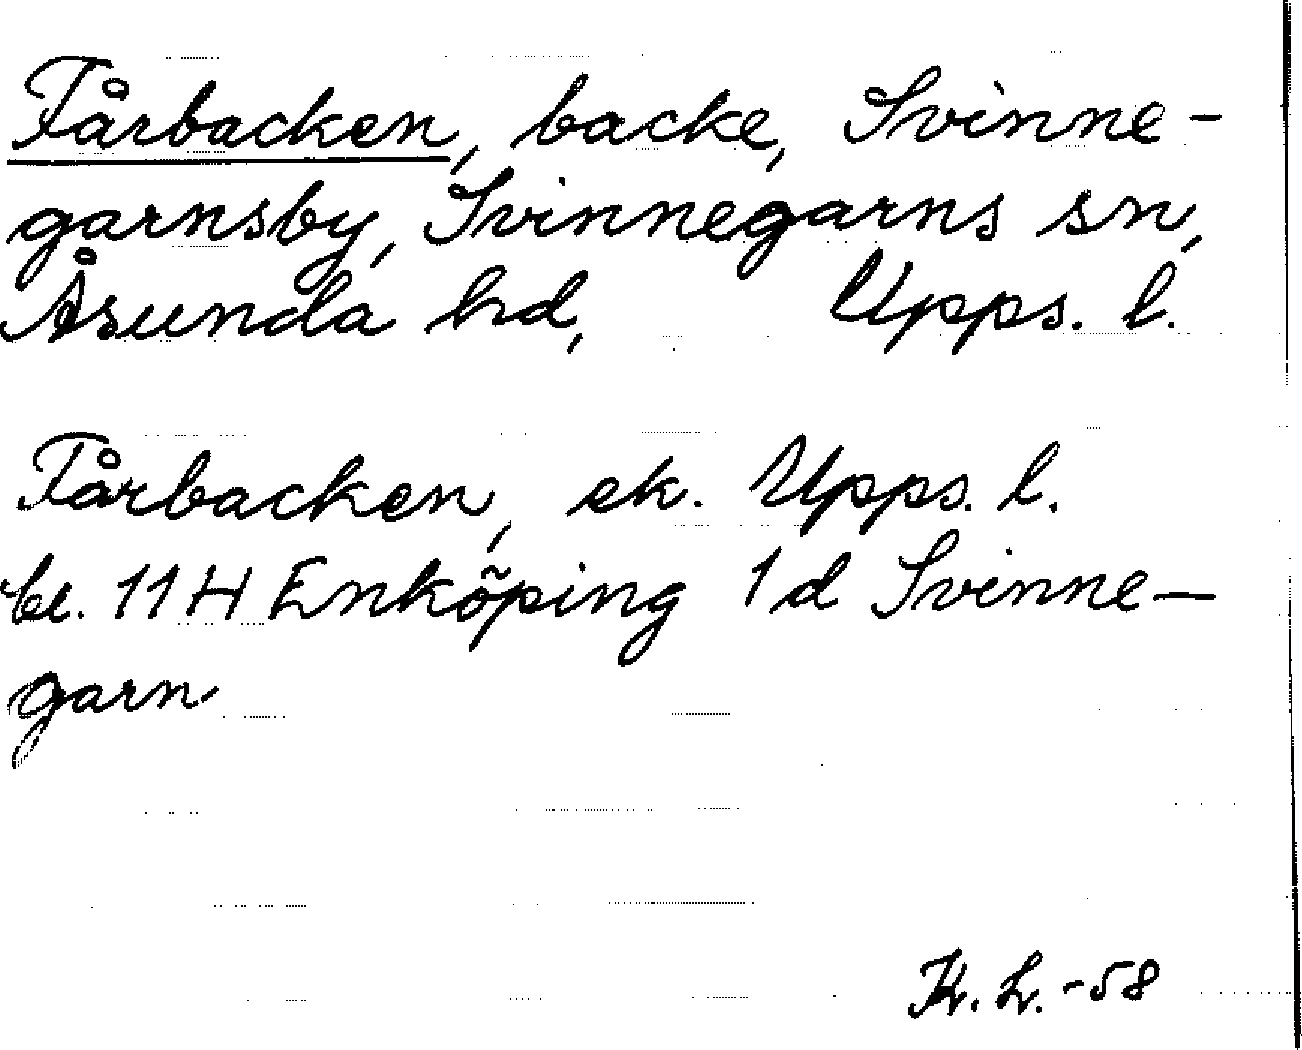 Fårbacken, backe, Svinne-
garnsby, Svinnegarns sn,
Åsunda hd, Upps. l.
Fårbacken, ek. Upps. l.
bl. 11 H Enköping 1 d Svinne-
garn
-58